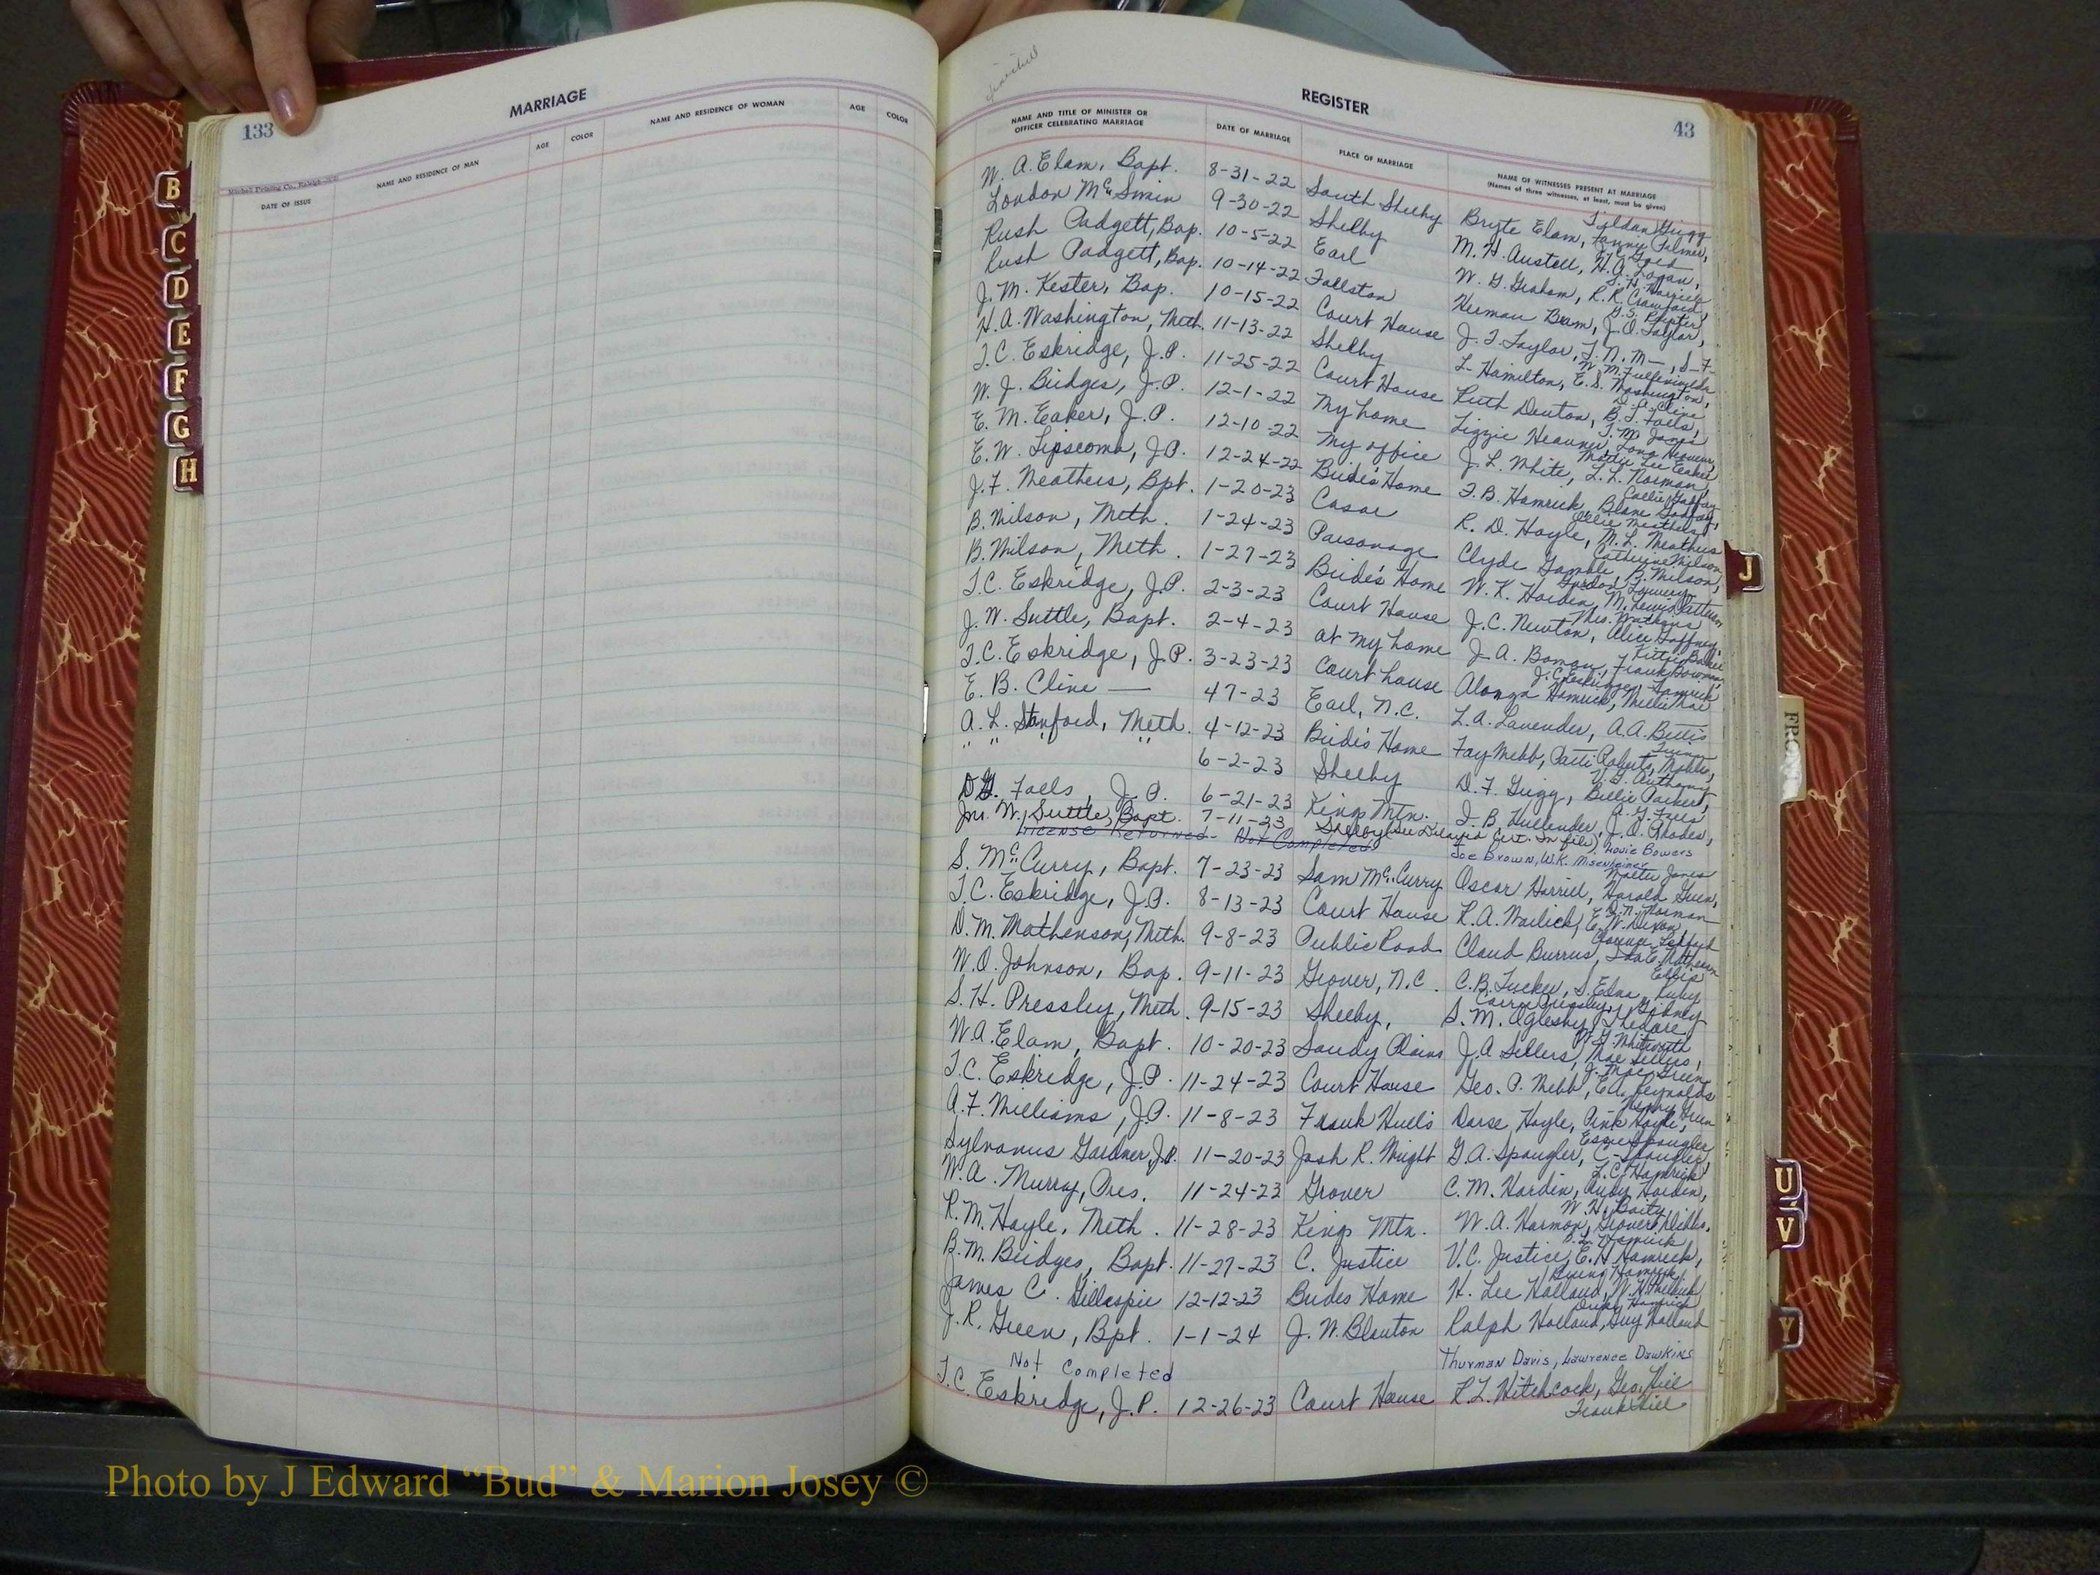 MARRIAGE
133
Mitchell Printing Co., Raleigh
DATE OF ISSUE
NAME AND RESIDENCE OF MAN
AGE
COLOR
NAME AND RESIDENCE OF WOMAN
AGE
COLOR
B
C
D
E
F
G
H
REGISTER
43
NAME AND TITLE OF MINISTER OR
OFFICER CELEBRATING MARRIAGE
DATE OF MARRIAGE
PLACE OF MARRIAGE
NAME OF WITNESSES PRESENT AT MARRIAGE
(Names of three witnesses, at least, must be given)
W. A. Elam, Bapt. 8-31-22 South Shelby Bryte Elam, Fanny Palmer, Tildan Grigg
London McSwain 9-30-22 Shelby M. H. Austell, H. A. Logan,
Rush Padgett, Bap. 10-5-22 Earl W. G. Graham, R. R. Crawford,
Rush Padgett, Bap. 10-14-22 Fallston Herman Beam, J. O. Taylor,
J. M. Kester, Bap. 10-15-22 Court House J. T. Taylor, T. N. M—, S—F—
H. A. Washington, Meth. 11-13-22 Shelby L— Hamilton, E. S. Washington,
T. C. Eskridge, J.P. 11-25-22 Court House Ruth Denton, B. T. Falls,
W. J. Bridges, J.P. 12-1-22 My home Lizzie Heavner,
E. M. Eaker, J.P. 12-10-22 My office J. L. White, L. L. Norman
E. W. Lipscomb, J.P. 12-24-22 Bride's Home T. B. Hamrick,
J. F. Weathers, Bpt. 1-20-23 Casar R. D. Hoyle, M. L. Weathers
B. Wilson, Meth. 1-24-23 Parsonage Clyde Gamble, B. Wilson, Catherine Wilson
B. Wilson, Meth. 1-27-23 Bride's Home W. K. Harden, M. Lewis Patterson
T. C. Eskridge, J.P. 2-3-23 Court House J. C. Newton, Alice Gaffney,
J. W. Suttle, Bapt. 2-4-23 at my home J. A. Boman, Frank Bowman,
T. C. Eskridge, J.P. 3-23-23 Court house Alonza Hamrick, Millie Mae
E. B. Cline — 4 7-23 Earl, N.C. L. A. Lavender, A. A. Bettis
A. L. Stanford, Meth. 4-12-23 Bride's Home Fay Webb, Patti Roberts,
" " " " 6-2-23 Shelby D. F. Grigg, Billie Packer,
Falls, J.P. 6-21-23 Kings Mtn. J. B. Hullender, J. O. Rhodes,
Jno. W. Suttle, Bapt. 7-11-23 Shelby (See Delayed Cert. In file) Lovie Bowers
License Returned Not Completed Joe Brown, W.K. Misenheimer
S. McCurry, Bapt. 7-23-23 Sam McCurry Oscar Harrill, Harold Green, Walter Jones
T. C. Eskridge, J.P. 8-13-23 Court House R. A. Warlick, E. W. Dixon
D. M. Mathenson, Meth. 9-8-23 Public Road Claud Burrus,
W. O. Johnson, Bap. 9-11-23 Grover, N.C. C. B. Tucker, S. Edna, Ruby Ellis
S. H. Pressley, Meth. 9-15-23 Shelby, S. M. Oglesby,
W. A. Elam, Bapt. 10-20-23 Sandy Plains J. A. Sellers, Mae Sellers,
T. C. Eskridge, J.P. 11-24-23 Court House Geo. P. Webb, E. A. Reynolds
A. F. Williams, J.P. 11-8-23 Frank Hull's Dorse Hoyle, Pink Hoyle,
Sylvanus Gardner, J.P. 11-20-23 Josh R. Wright G. A. Spangler, C— Spangler,
W. A. Murray, Pres. 11-24-23 Grover C. M. Hardin, Ruby Hardin, L. C. Hamrick
R. M. Hoyle, Meth. 11-28-23 Kings Mtn. W. A. Harmon, Grover
B. M. Bridges, Bapt. 11-27-23 C. Justice V. C. Justice, E. H. Hamrick,
James C. Gillespie 12-12-23 Brides Home H. Lee Holland,
J. R. Green, Bpt. 1-1-24 J. W. Blanton Ralph Holland, Guy Holland
Not Completed Thurman Davis, Lawrence Dawkins
T. C. Eskridge, J.P. 12-26-23 Court House R. L. Hitchcock, Geo. Hill
Frank Hill
J
FRONT
U
V
Y
Photo by J Edward “Bud” & Marion Josey ©